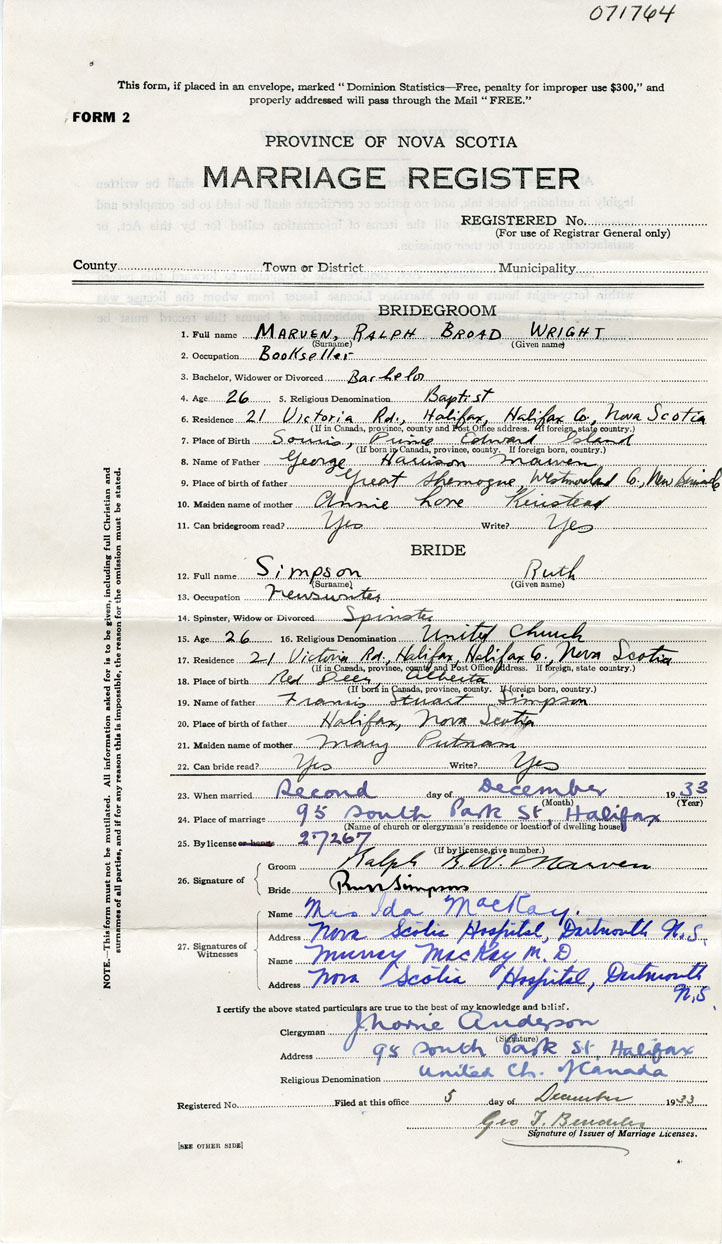 071764
This form, if placed in an envelope, marked "Dominion Statistics—Free, penalty for improper use $300," and
properly addressed will pass through the Mail "FREE."
FORM 2
PROVINCE OF NOVA SCOTIA
MARRIAGE REGISTER
REGISTERED No.
(For use of Registrar General only)
County Town or District Municipality
BRIDEGROOM
1. Full name MARVEN, RALPH BROAD WRIGHT
(Surname) (Given name)
2. Occupation Bookseller
3. Bachelor, Widower or Divorced Bachelor
4. Age 26 5. Religious Denomination Baptist
6. Residence 21 Victoria Rd., Halifax, Halifax Co, Nova Scotia
(If in Canada, province, county and Post Office address. If foreign, state country.)
7. Place of Birth Souris, Prince Edward Island
(If born in Canada, province, county. If foreign born, country.)
8. Name of Father George Harrison Marven
9. Place of birth of father Great Shemogue, Westmorland Co., New Brunswick
10. Maiden name of mother Annie Love
11. Can bridegroom read? Yes Write? Yes
BRIDE
12. Full name Simpson Ruth
(Surname) (Given name)
13. Occupation Newswriter
14. Spinster, Widow or Divorced Spinster
15. Age 26 16. Religious Denomination United Church
17. Residence 21 Victoria Rd., Halifax, Halifax Co., Nova Scotia
(If in Canada, province, county and Post Office Address. If foreign, state country.)
18. Place of birth Red Deer, Alberta
(If born in Canada, province, county. If foreign born, country.)
19. Name of father Francis Stuart Simpson
20. Place of birth of father Halifax, Nova Scotia
21. Maiden name of mother Mary Putnam
22. Can bride read? Yes Write? Yes
23. When married Second day of December 1933
(Month) (Year)
24. Place of marriage 95 South Park St, Halifax
(Name of church or clergyman's residence or location of dwelling house)
25. By license or banns 27267
(If by license, give number.)
26. Signature of Groom Ralph B. W. Marven
Bride Ruth Simpson
27. Signatures of Witnesses
Name Mrs Ida MacKay.
Address Nova Scotia Hospital, Dartmouth N.S.
Name Murray MacKay M.D.
Address Nova Scotia Hospital, Dartmouth
N.S.
I certify the above stated particulars are true to the best of my knowledge and belief.
Clergyman Anderson
(Signature)
Address 95 South Park St Halifax
Religious Denomination United Ch. of Canada
Registered No. Filed at this office 5 day of December 1933
Geo T.
Signature of Issuer of Marriage Licenses.
[SEE OTHER SIDE]
NOTE.—This form must not be mutilated. All information asked for is to be given, including full Christian and
surnames of all parties, and if for any reason this is impossible, the reason for the omission must be stated.